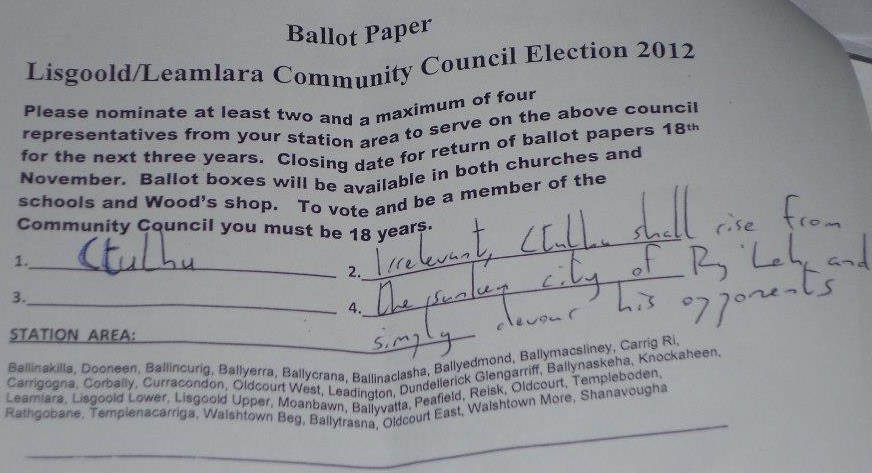 Ballot Paper
Lisgoold/Leamlara Community Council Election 2012
Please nominate at least two and a maximum of four
representatives from your station area to serve on the above council
for the next three years. Closing date for return of ballot papers 18th
November. Ballot boxes will be available in both churches and
schools and Wood's shop. To vote and be a member of the
Community Council you must be 18 years.
1. Ctulhu
2. Irrelevant, Ctulhu shall rise from
3.
4. the sunken city of Ry'Leh, and
simply devour his opponents
STATION AREA:
Ballinakilla, Dooneen, Ballincurig, Ballyerra, Ballycrana, Ballinaclasha, Ballyedmond, Ballymacsliney, Carrig Ri,
Carrigogna, Corbally, Curracondon, Oldcourt West, Leadington, Dundellerick Glengarriff, Ballynaskeha, Knockaheen,
Leamlara, Lisgoold Lower, Lisgoold Upper, Moanbawn, Ballyvatta, Peafield, Reisk, Oldcourt, Templeboden,
Rathgobane, Templenacarriga, Walshtown Beg, Ballytrasna, Oldcourt East, Walshtown More, Shanavougha